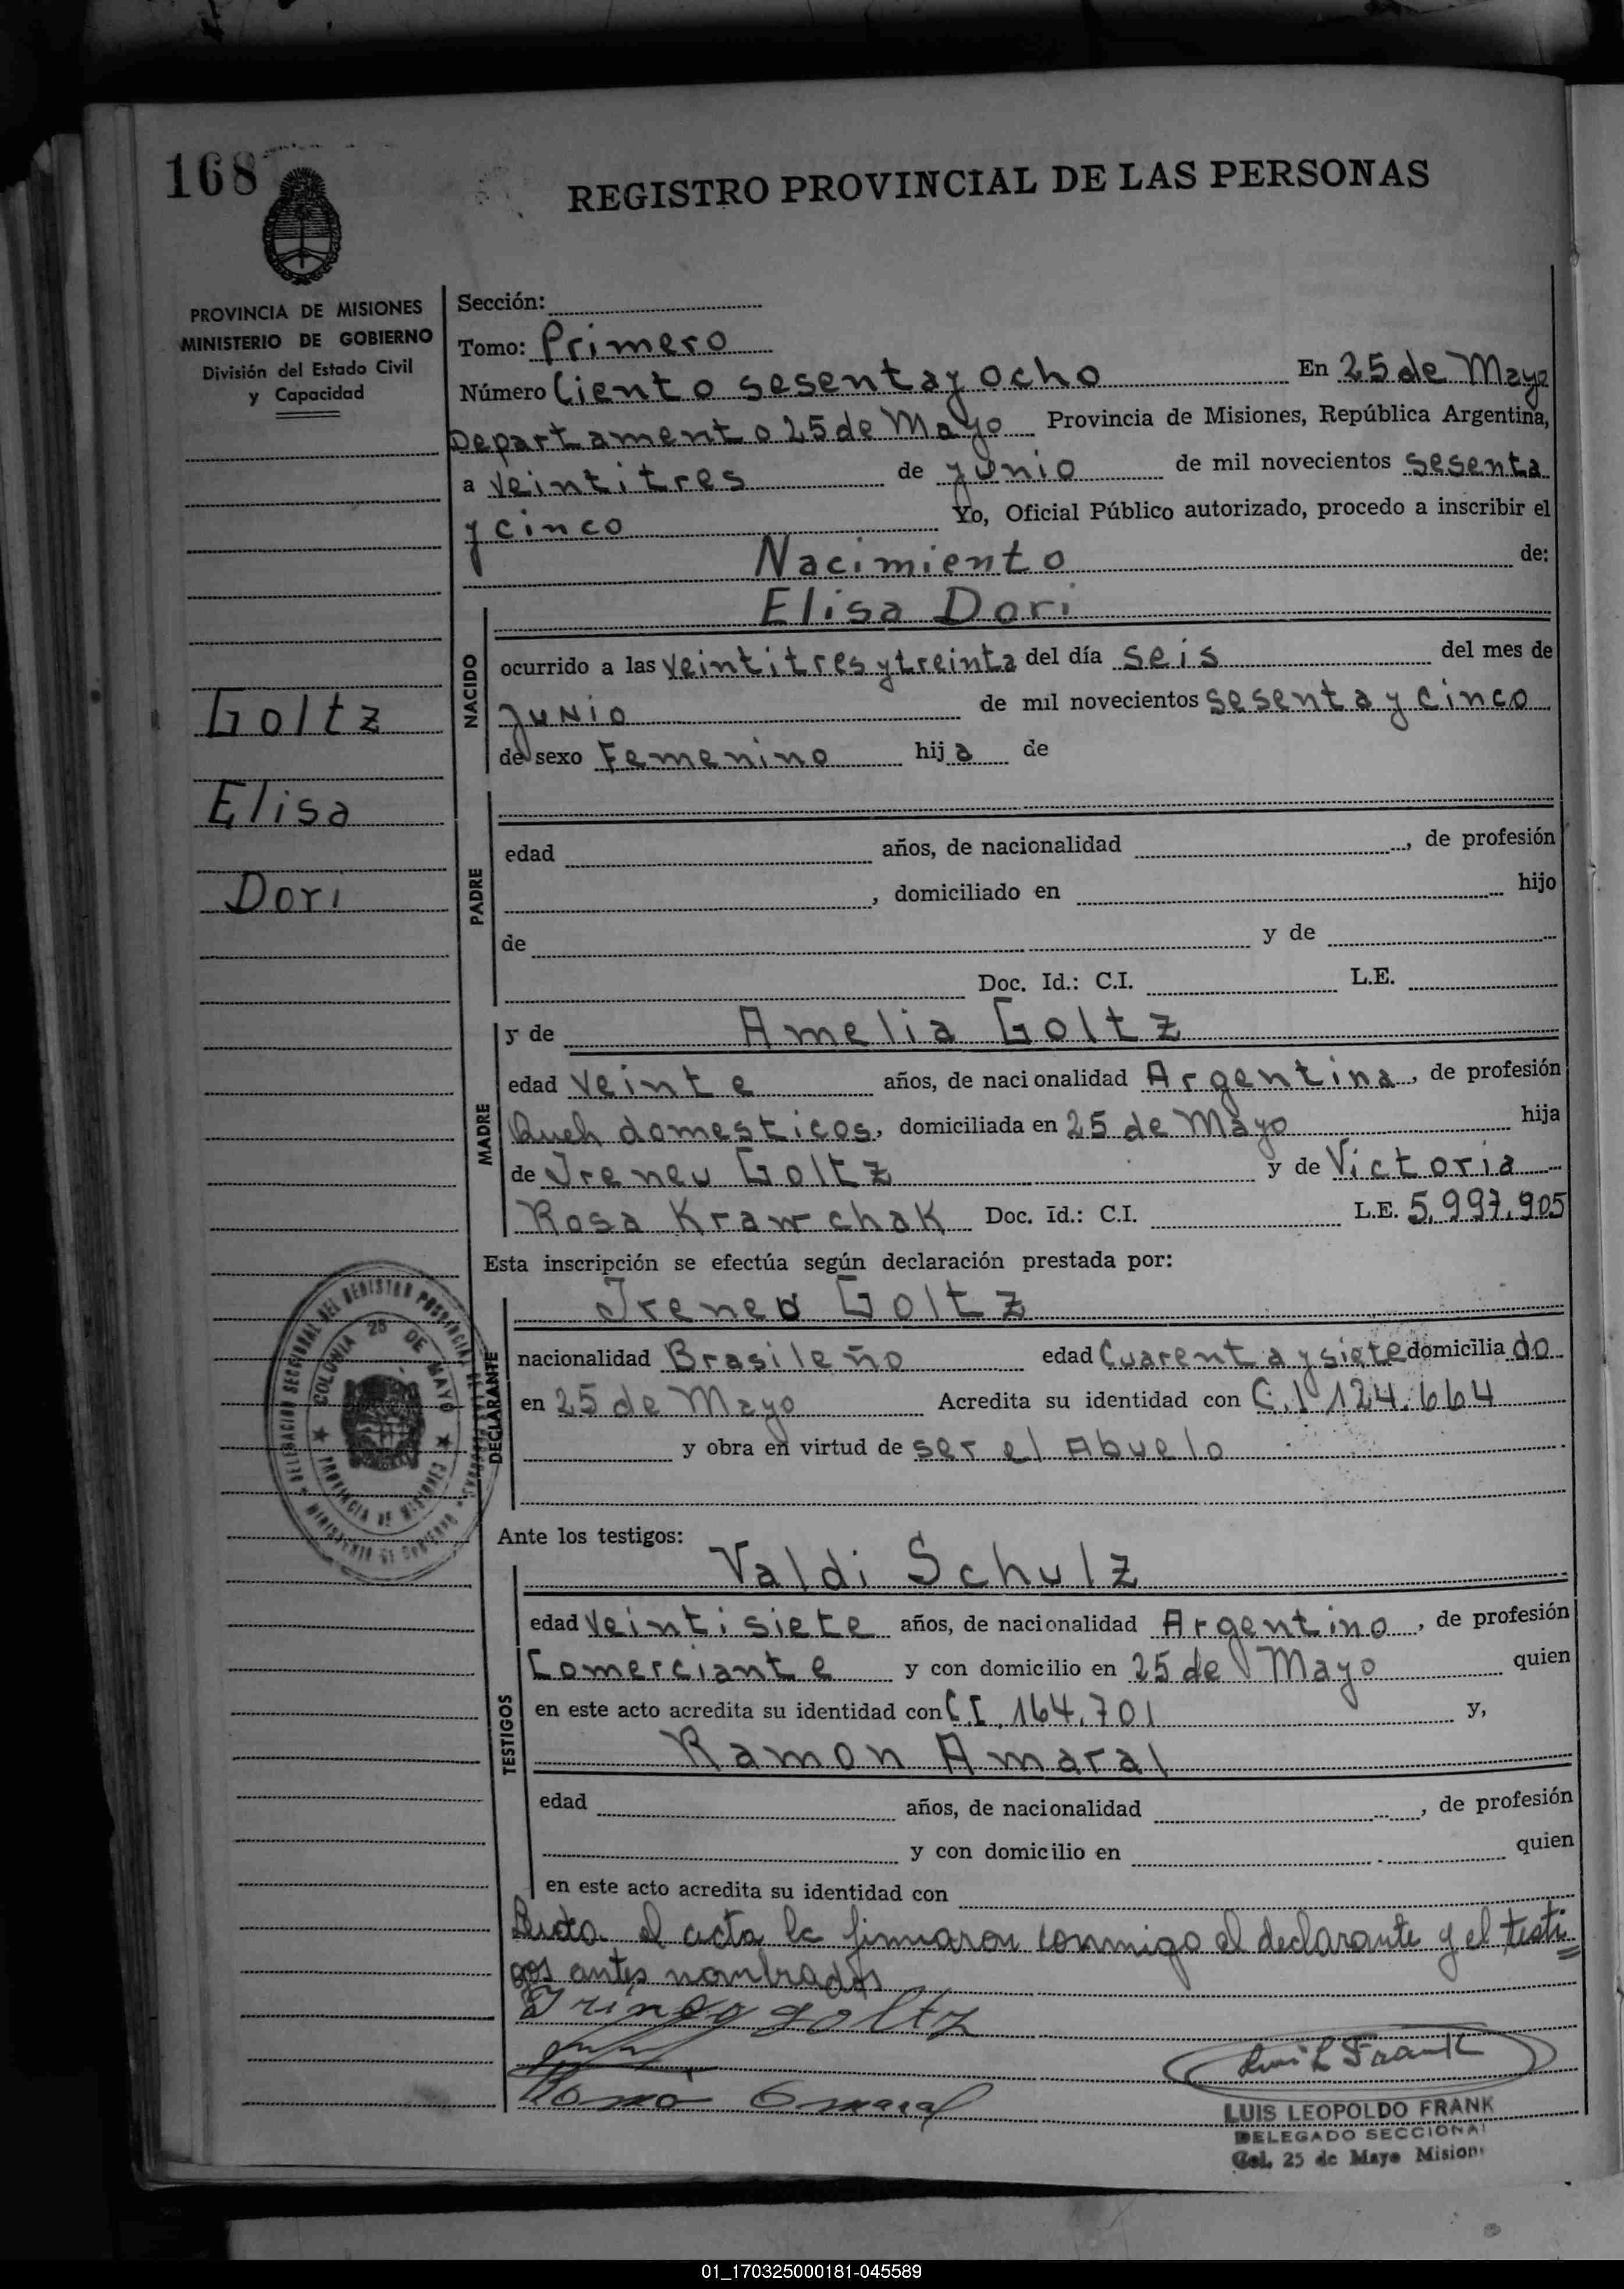 168
REGISTRO PROVINCIAL DE LAS PERSONAS
PROVINCIA DE MISIONES
MINISTERIO DE GOBIERNO
División del Estado Civil
y Capacidad
Goltz
Elisa
Dori
Sección:
Tomo: Primero
Número Ciento sesenta y ocho En 25 de Mayo
Departamento 25 de Mayo Provincia de Misiones, República Argentina,
a veintitres de junio de mil novecientos sesenta
y cinco Yo, Oficial Público autorizado, procedo a inscribir el
Nacimiento de:
NACIDO
Elisa Dori
ocurrido a las veintitres y treinta del día seis del mes de
junio de mil novecientos sesenta y cinco
de sexo Femenino hija de
PADRE
edad años, de nacionalidad , de profesión
, domiciliado en hijo
de y de
Doc. Id.: C.I. L.E.
MADRE
y de Amelia Goltz
edad veinte años, de nacionalidad Argentina, de profesión
Queh domesticos, domiciliada en 25 de Mayo hija
de Ireneu Goltz y de Victoria
Rosa Krawchak Doc. Id.: C.I. L.E. 5.997.905
Esta inscripción se efectúa según declaración prestada por:
DECLARANTE
Ireneo Goltz
nacionalidad Brasileño edad Cuarenta y siete domiciliado
en 25 de Mayo Acredita su identidad con C.I 124.664
y obra en virtud de ser el Abuelo
DELEGACION SECCIONAL DEL REGISTRO PROVINCIAL
COLONIA 25 DE MAYO
PROVINCIA DE MISIONES
MINISTERIO DE GOBIERNO
Ante los testigos:
TESTIGOS
Valdi Schulz
edad veintisiete años, de nacionalidad Argentino, de profesión
Comerciante y con domicilio en 25 de Mayo quien
en este acto acredita su identidad con C I. 164.701 y,
Ramon Amaral
edad años, de nacionalidad , de profesión
y con domicilio en quien
en este acto acredita su identidad con
el acta la firmaron conmigo el declarante y el testi=
gos antes nombrados
goltz
Luis L Frank
LUIS LEOPOLDO FRANK
DELEGADO SECCIONAL
Col. 25 de Mayo Misiones
01_170325000181-045589